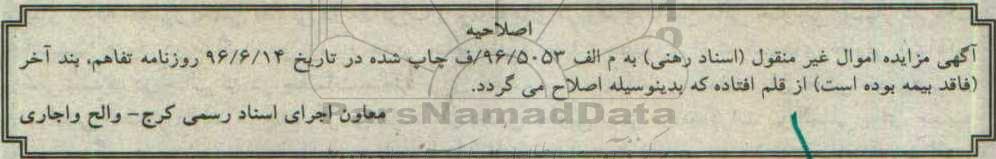 اصلاحیه
آگهی مزایده اموال غیر منقول (اسناد رهنی) به م الف ۹۶/۵۰۵۳/ف چاپ شده در تاریخ ۹۶/۶/۱۴ روزنامه تفاهم، بند آخر
(فاقد بیمه بوده است) از قلم افتاده که بدینوسیله اصلاح می گردد.
معاون اجرای اسناد رسمی کرج- والح واجاری
ParsNamadData